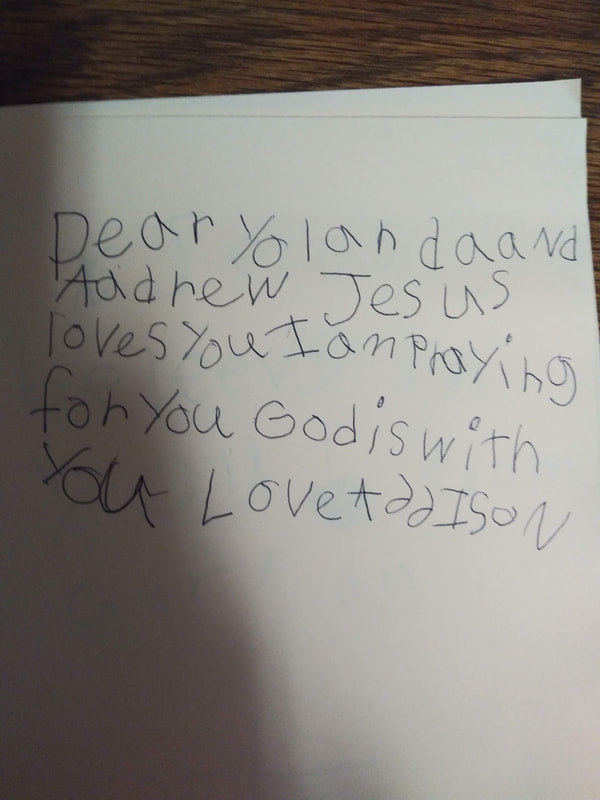 Dear Yolanda aNd
Aadrew Jesus
loves You I am Praying
for You God is with
You Love AddISoN